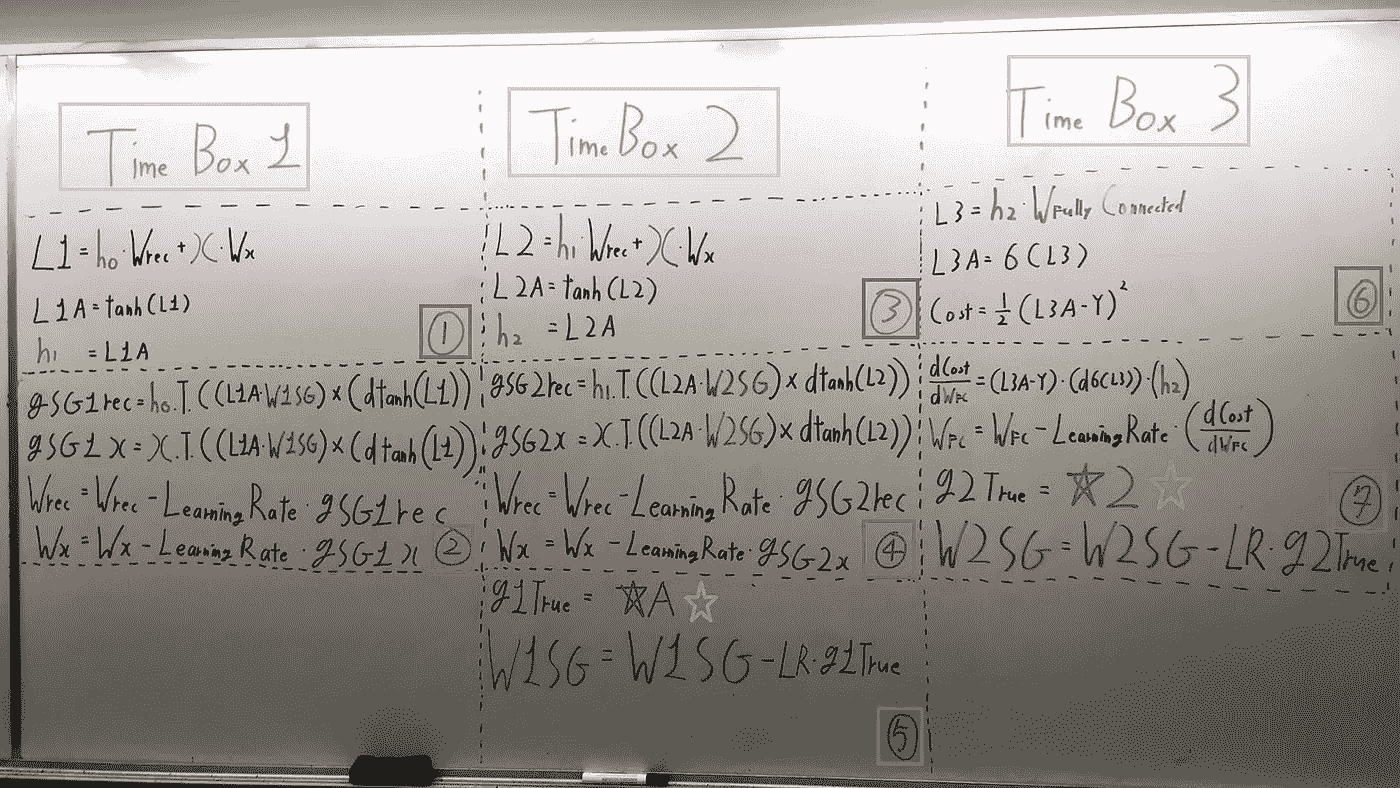 Time Box 1
L1 = h0·Wrec + X·Wx
L1A = tanh(L1)
h1 = L1A
①
gSG1rec = h0.T.((L1A·W1SG)×(dtanh(L1))
gSG1x = X.T.((L1A·W1SG)×(dtanh(L1))
Wrec = Wrec - Learning Rate·gSG1rec
Wx = Wx - Learning Rate·gSG1x
②
Time Box 2
L2 = h1·Wrec + X·Wx
L2A = tanh(L2)
h2 = L2A
③
gSG2rec = h1.T.((L2A·W2SG)×dtanh(L2))
gSG2x = X.T.((L2A·W2SG)×dtanh(L2))
Wrec = Wrec - Learning Rate·gSG2rec
Wx = Wx - Learning Rate·gSG2x
④
g1True = ☆A☆
W1SG = W1SG - LR·g1True
⑤
Time Box 3
L3 = h2·WFully Connected
L3A = 6(L3)
Cost = 1/2 (L3A-Y)²
⑥
dCost/dWFC = (L3A-Y)·(d6(L3))·(h2)
WFC = WFC - Learning Rate·(dCost/dWFC)
g2True = ☆2☆
W2SG = W2SG - LR·g2True
⑦